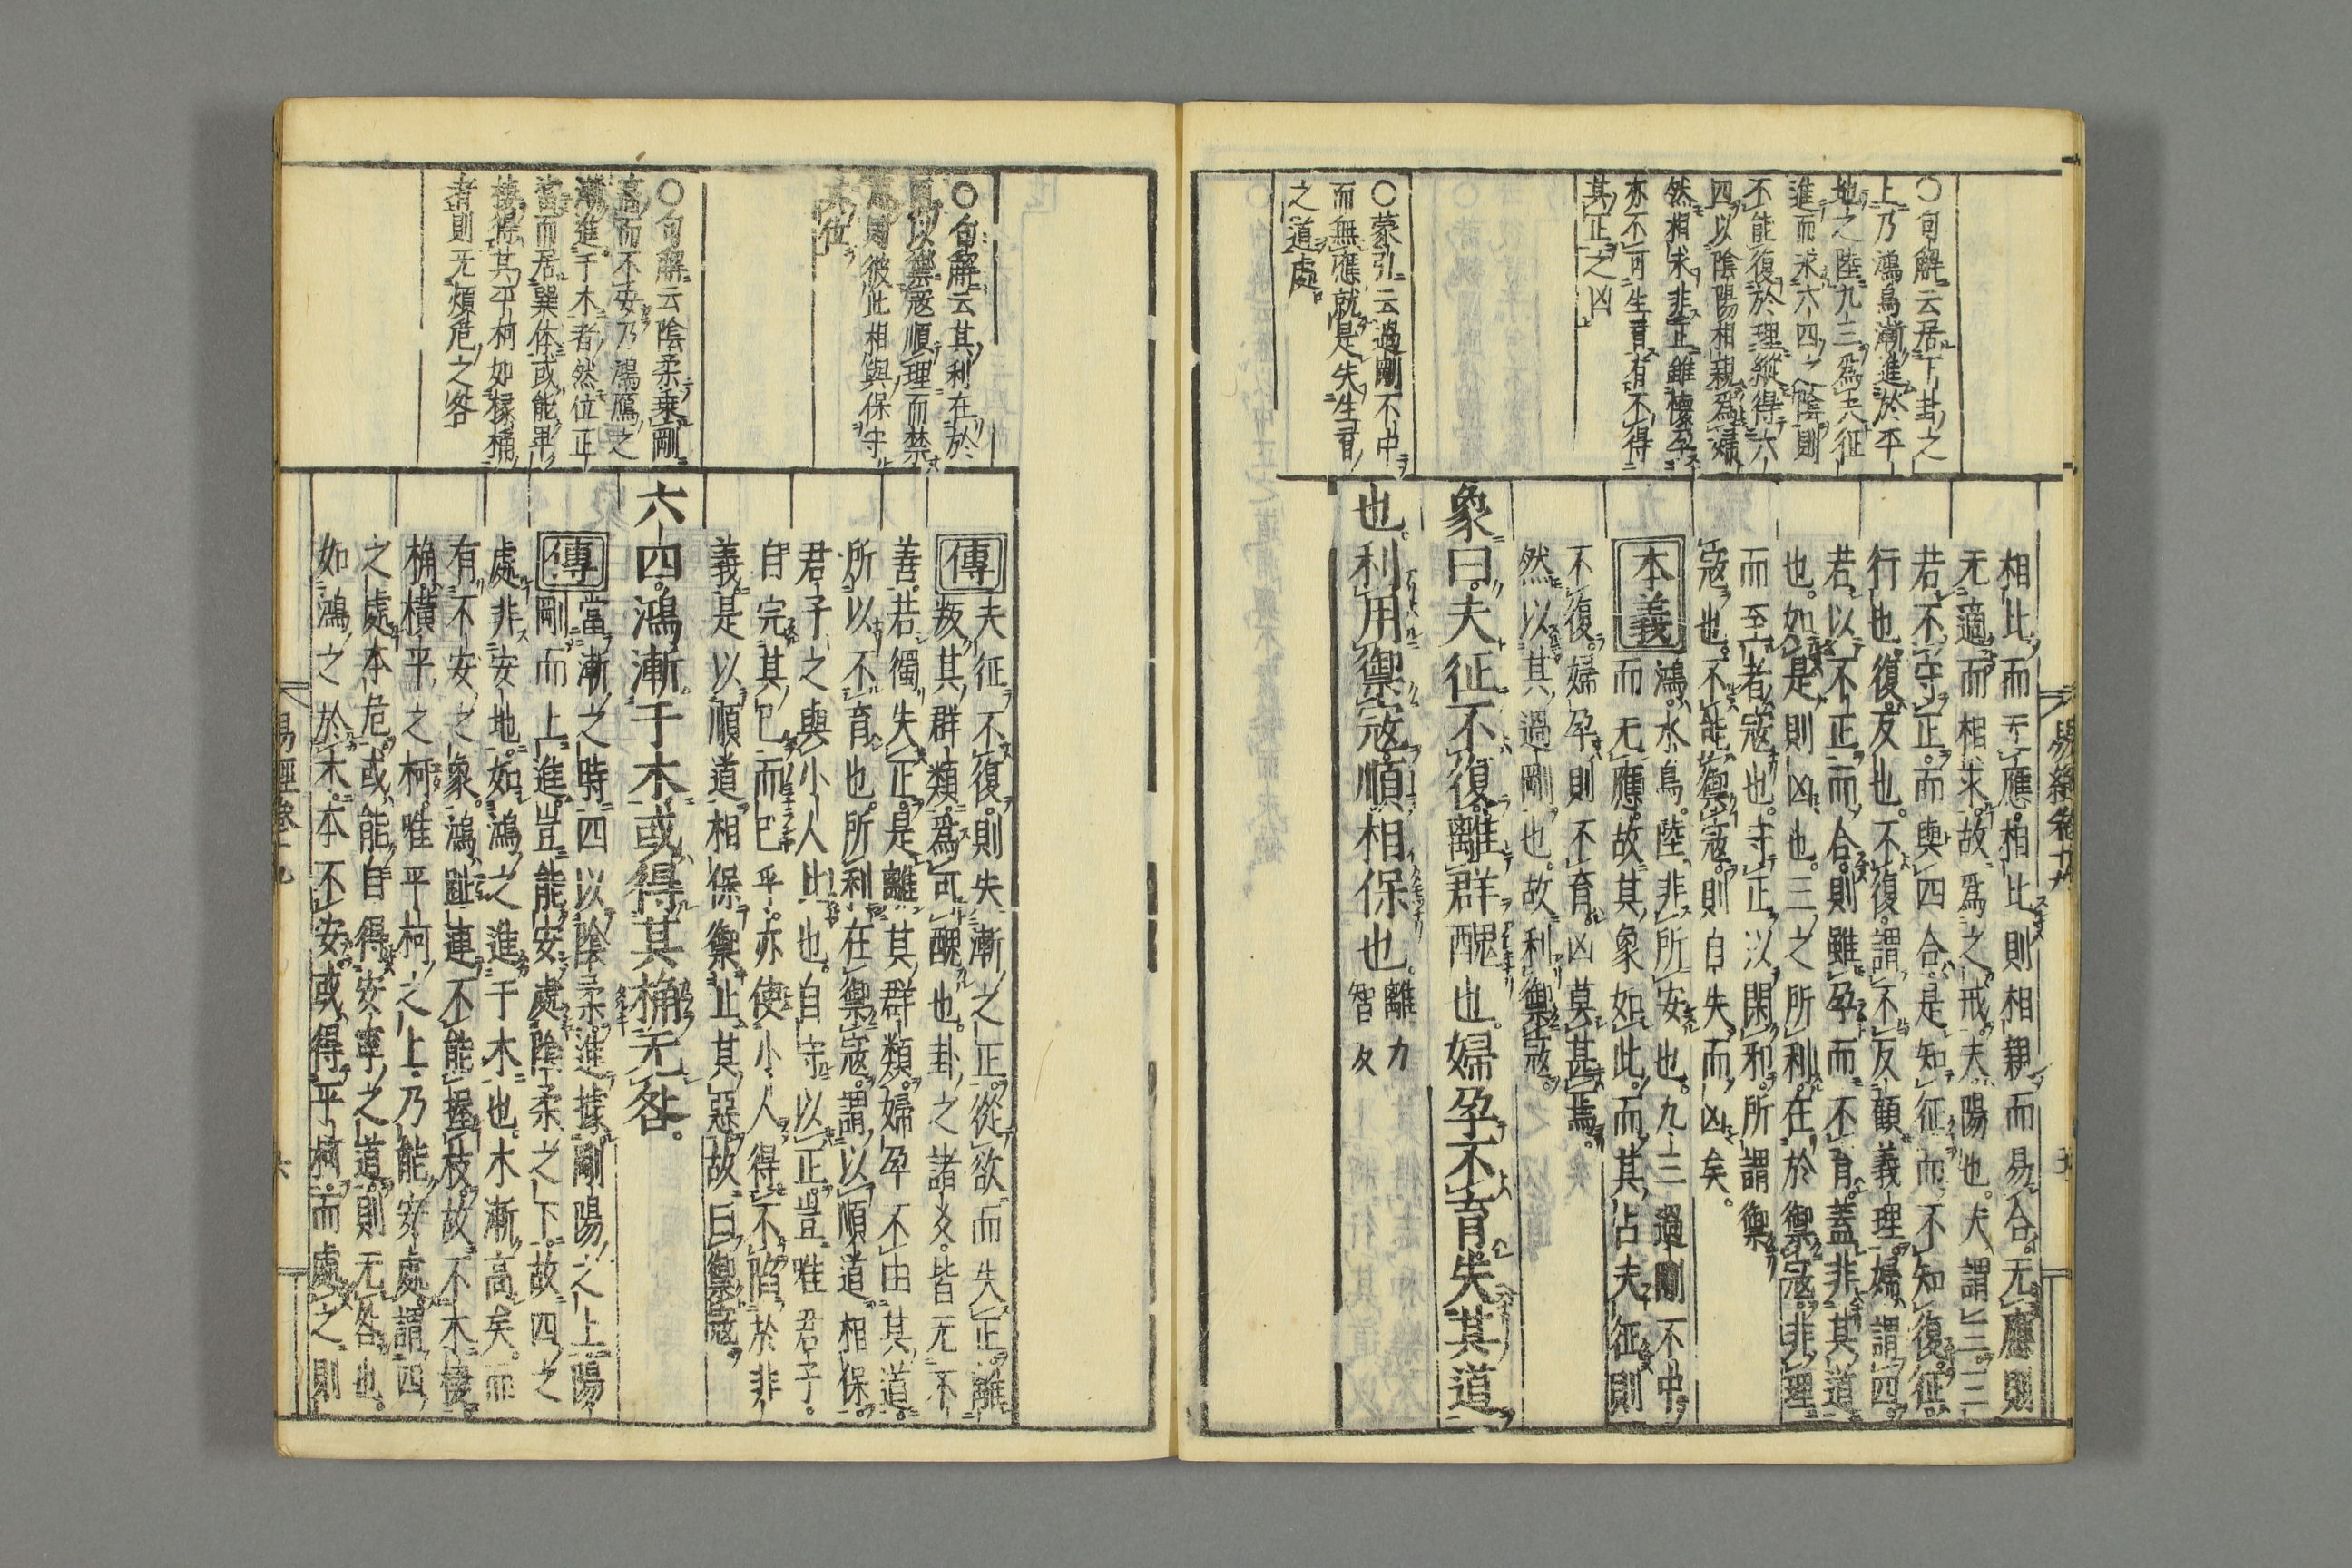 〇句解云居下卦之
上乃鴻鳥漸進於平
地之陸九三爲夫征
進而求六四之陰則
不能復於理縱得六
四以陰陽相親爲婦
然相求非正雖懷孕
亦不可生育有不得
其正之凶
〇蒙引云過剛不中
而無應就是失生育
之道處
相比而无應相比則相親而易合无應則
无適而相求故爲之戒夫陽也夫謂三三
若不守正而與四合是知征而不知復征
行也復反也不復謂不反顧義理婦謂四
若以不正而合則雖孕而不育蓋非其道
也如是則凶也三之所利在於禦寇非理
而至者寇也守正以閑邪所謂禦
寇也不能禦寇則自失而凶矣
本義鴻水鳥陸非所安也九三過剛不中
而无應故其象如此而其占夫征則
不復婦孕則不育凶莫甚焉
然以其過剛也故利禦寇
象曰夫征不復離群醜也婦孕不育失其道
也利用禦寇順相保也離力
智反
〇句解云其利在於
用以禦寇順理而禁
則彼此相與保守
其位
〇句解云陰柔乗剛
高而不安乃鴻鴈之
漸進于木者然位正
當而居巽体或能畢
棲得其平柯如椽桷
者則无煩危之咎
傳夫征不復則失漸之正從欲而失正離
叛其群類爲可醜也卦之諸爻皆无不
善若獨失正是離其群類婦孕不由其道
所以不育也所利在禦寇謂以順道相保
君子之與小人比也自守以正豈唯君子
自完其己而已乎亦使小人得不陷於非
義是以順道相保禦止其惡故曰禦寇
六四鴻漸于木或得其桷无咎
傳當漸之時四以陰柔進據剛陽之上陽
剛而上進豈能安處陰柔之下故四之
處非安地如鴻之進于木也木漸高矣而
有不安之象鴻趾連不能握枝故不木棲
桷横平之柯唯平柯之上乃能安處謂四
之處本危或能自得安寧之道則无咎也
如鴻之於木本不安或得平柯而處之則
易經卷十九
六